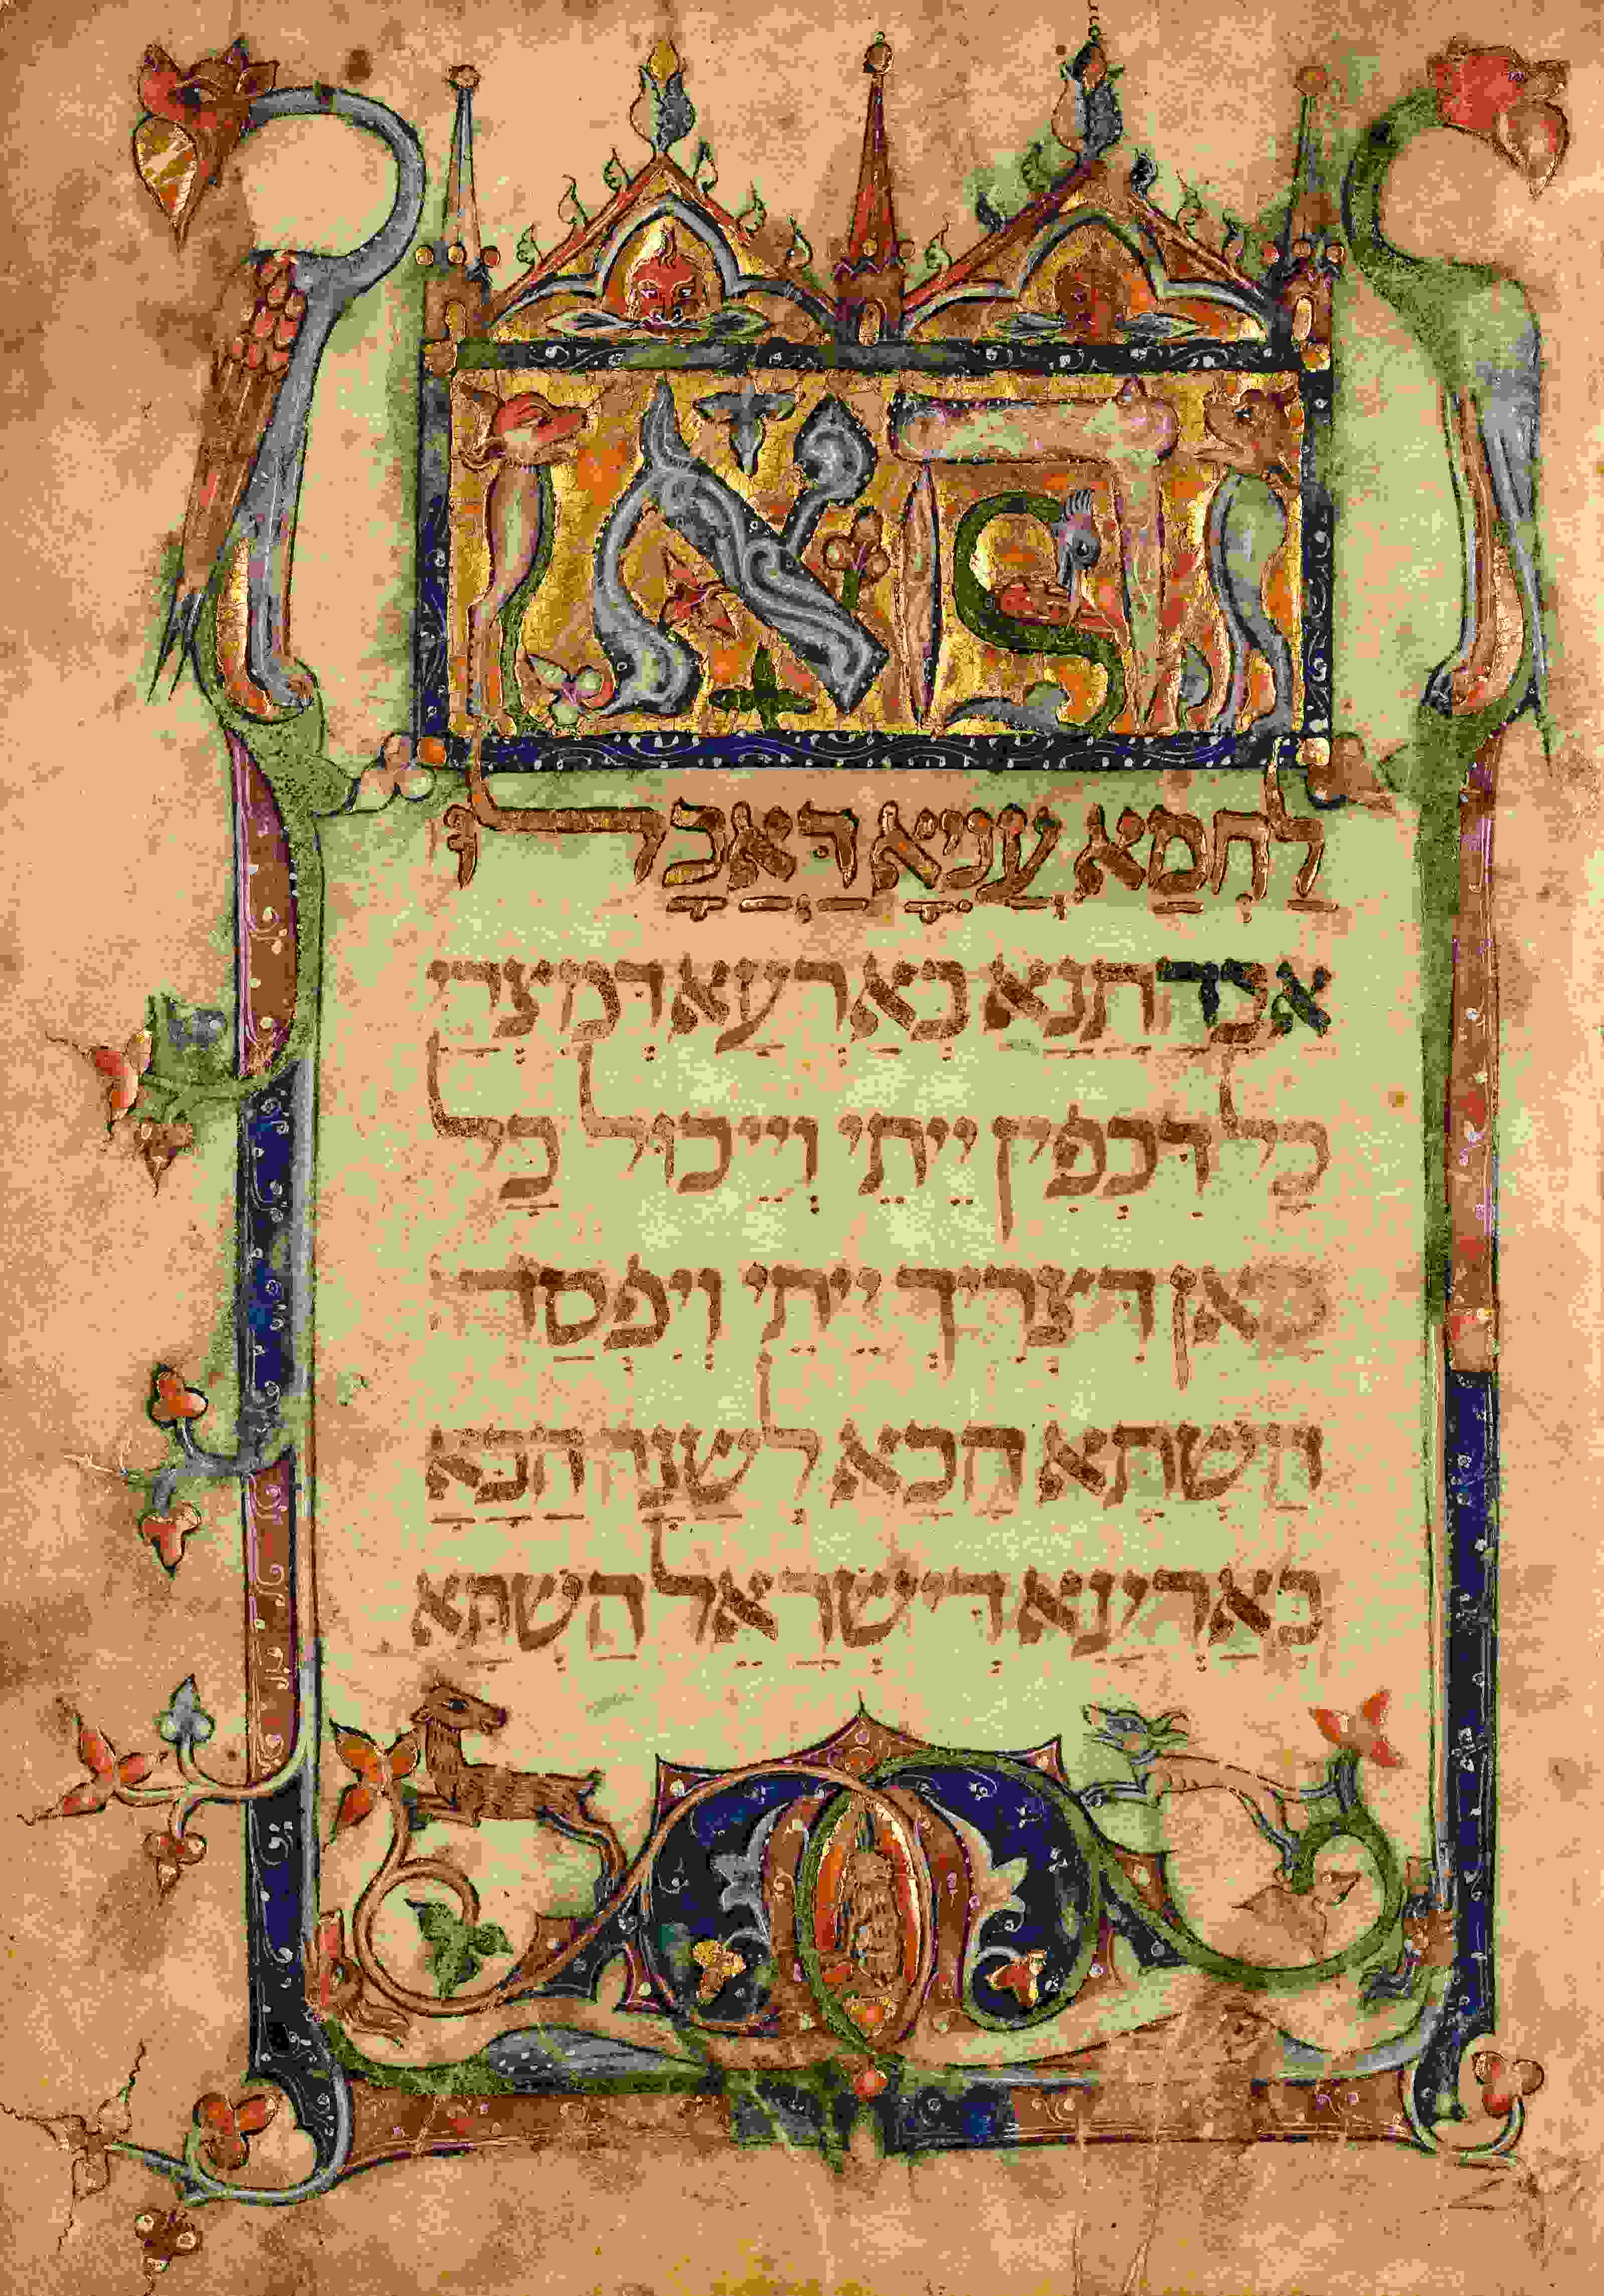 הא
לחמא עניא דאכלו
אבהתנא בארעא דמצרי
כל דכפין ייתי וייכול כל
מאן דצריך ייתי ויפסח
השתא הכא לשנה הבא
בארעא דישראל השתא